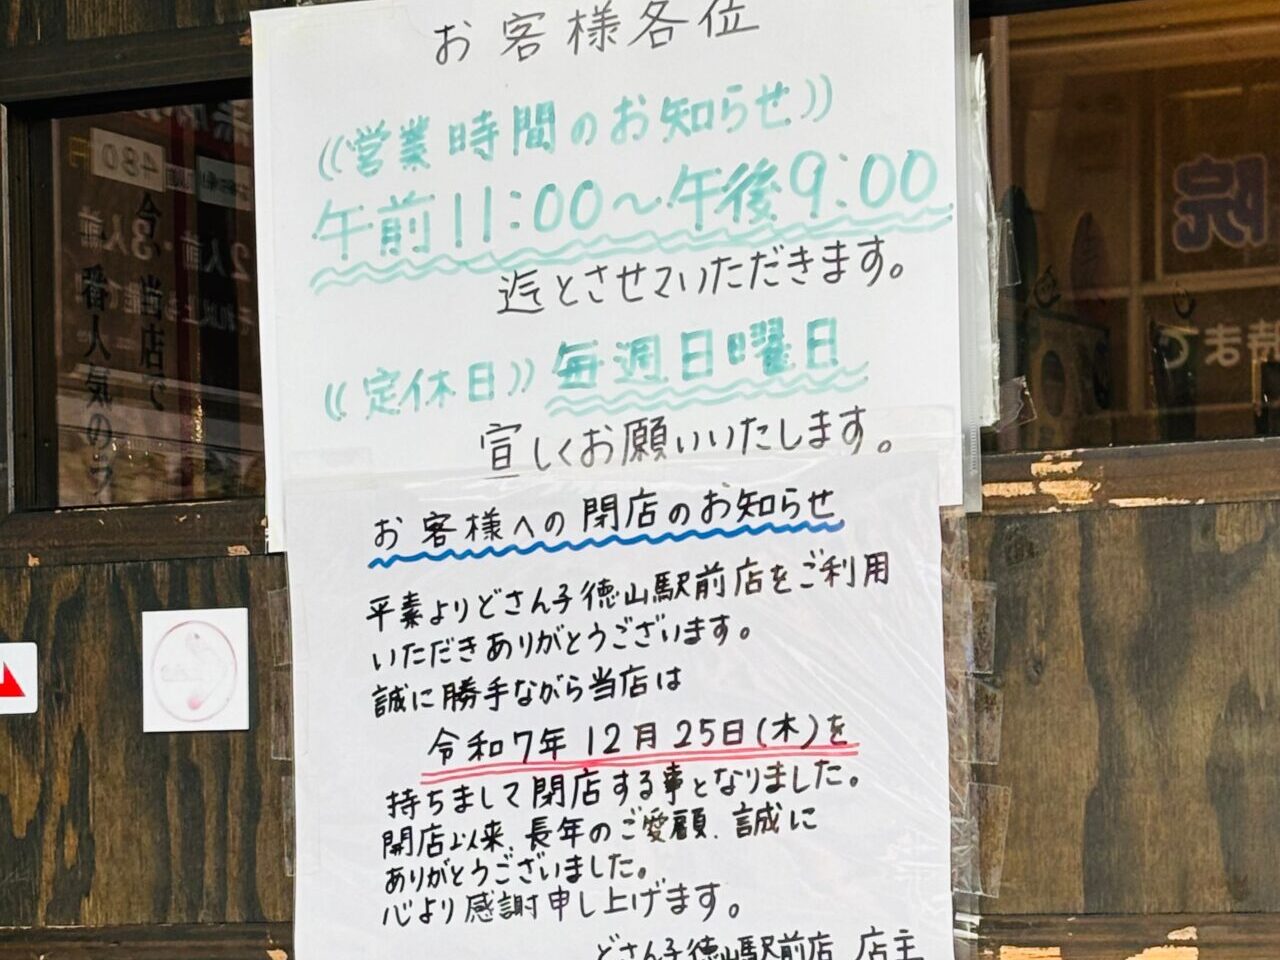 お客様各位
((営業時間のお知らせ))
午前11:00～午後9:00
迄とさせていただきます。
((定休日)) 毎週日曜日
宜しくお願いいたします。
お客様への閉店のお知らせ
平素よりどさん子徳山駅前店をご利用
いただきありがとうございます。
誠に勝手ながら当店は
令和7年12月25日(木)を
持ちまして閉店する事となりました。
開店以来、長年のご愛顧、誠に
ありがとうございました。
心より感謝申し上げます。
どさん子徳山駅前店 店主
480円
2人前・3人前
今、当店で
一番人気の
院
時まで